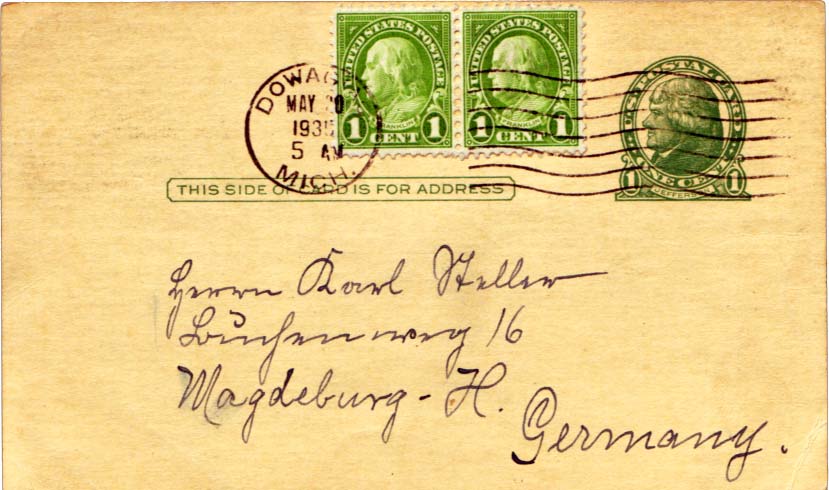 UNITED STATES POSTAGE UNITED STATES POSTAGE
FRANKLIN FRANKLIN
1 CENT 1 1 CENT 1
U.S. POSTAL CARD
1 ONE CENT 1
JEFFERSON
MAY 20
1935
5 AM
MICH.
THIS SIDE OF CARD IS FOR ADDRESS
Herrn Karl Steller
Buchenweg 16
Magdeburg - H.
Germany.